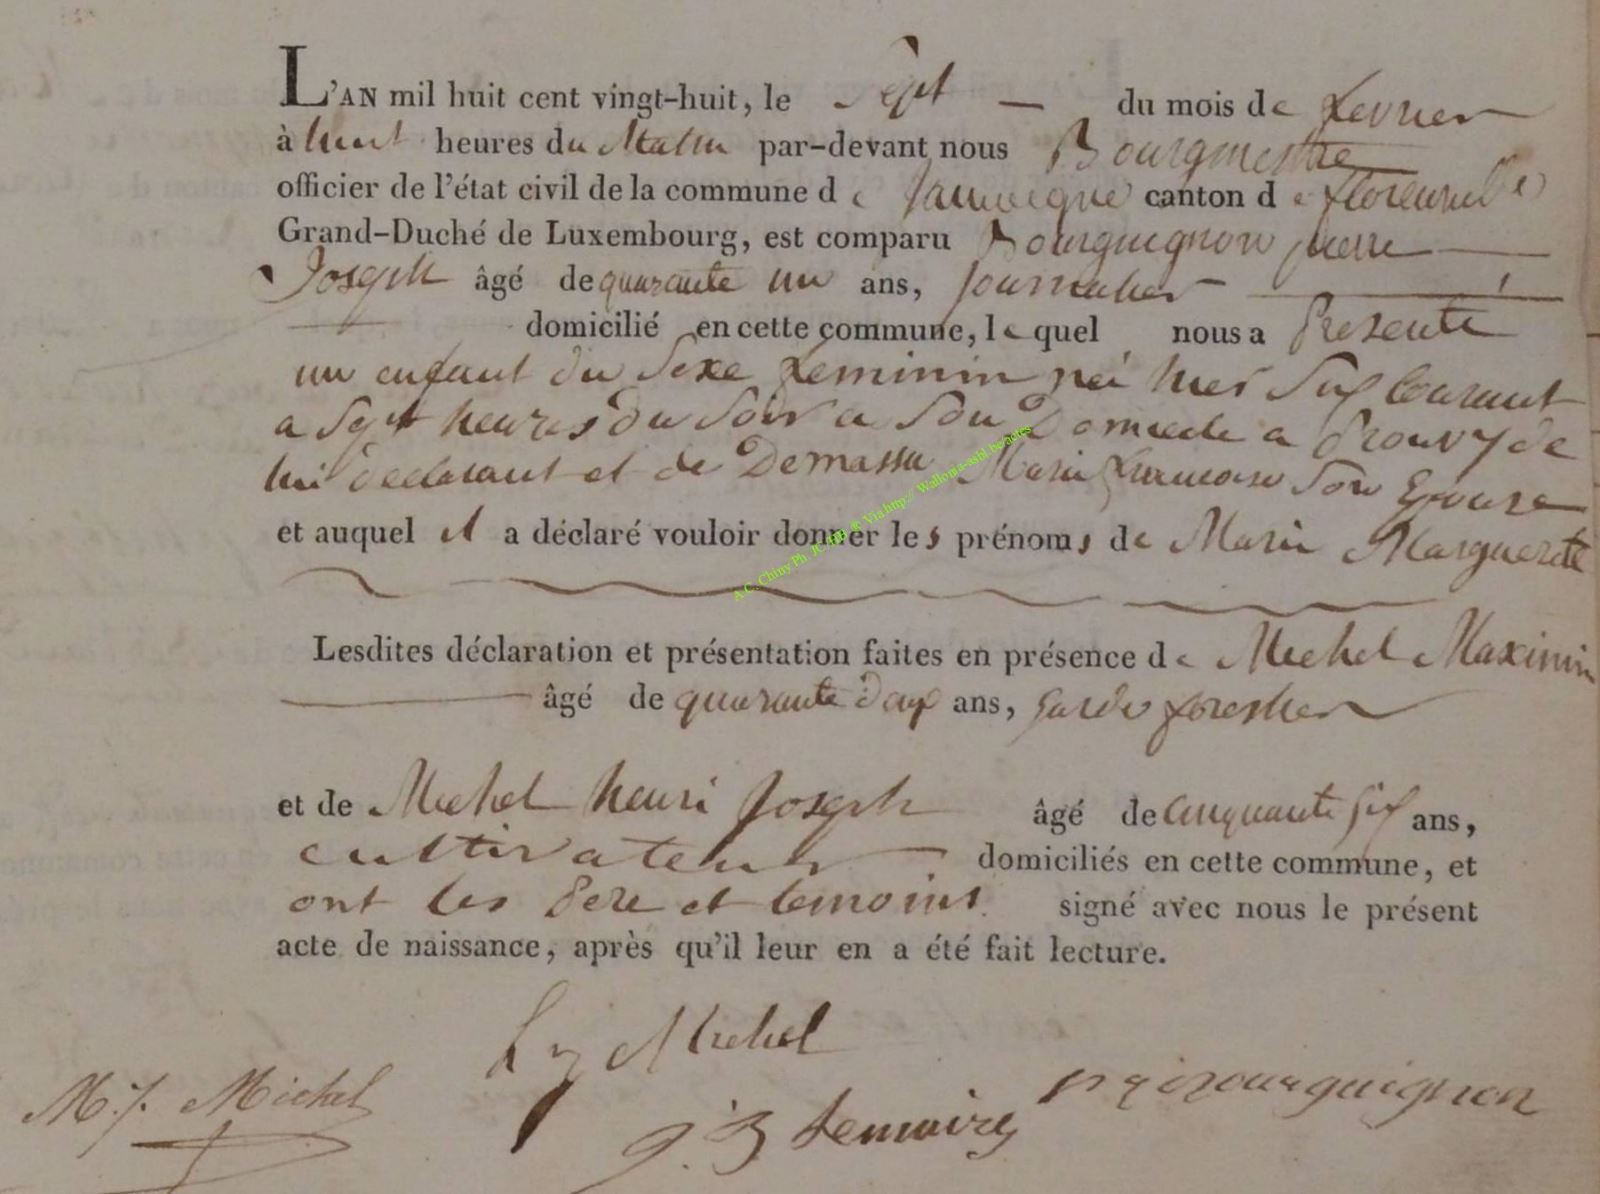 L'AN mil huit cent vingt-huit, le Sept du mois de fevrier
à huit heures du Matin par-devant nous Bourgmestre
officier de l'état civil de la commune de Jamoigne canton de florenville
Grand-Duché de Luxembourg, est comparu Bourguignon pierre
Joseph âgé de quarante un ans, Journalier
domicilié en cette commune, lequel nous a Presenté
un enfant du Sexe feminin né hier Six Courant
a Sept heures du Soir a Son Domicile a Prouvy de
lui declarant et de Demassu Marie francoise Son Epouse
et auquel il a déclaré vouloir donner les prénoms de Marie Marguerite
Lesdites déclaration et présentation faites en présence de Michel Maximin
âgé de quarante deux ans, Garde forestier
et de Michel henri Joseph âgé de Cinquante Six ans,
cultivateur domiciliés en cette commune, et
ont les Pere et temoins signé avec nous le présent
acte de naissance, après qu'il leur en a été fait lecture.
Michel
M.j. Michel
j. B Lemaire
p j bourguignon
A.C. Chiny Ph. JC BD & Via http:// Wallonia-asbl.be/actes